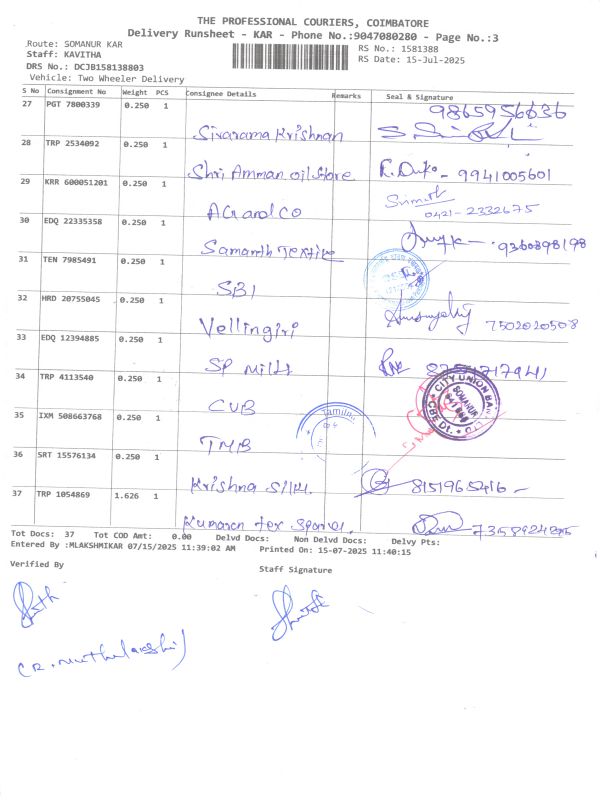 THE PROFESSIONAL COURIERS, COIMBATORE
Delivery Runsheet - KAR - Phone No.:9047080280 - Page No.:3
Route: SOMANUR KAR
Staff: KAVITHA
DRS No.: DCJB158138803
Vehicle: Two Wheeler Delivery
RS No.: 1581388
RS Date: 15-Jul-2025
S No Consignment No Weight PCS Consignee Details Remarks Seal & Signature
27 PGT 7800339 0.250 1 Sivarama Krishnan 9865956636
28 TRP 2534092 0.250 1 Shri Amman oil Store 9941005601
29 KRR 600051201 0.250 1 AG and CO 0421-2332675
30 EDQ 22335358 0.250 1 Samarth Textile 9360898198
31 TEN 7985491 0.250 1 SBI
32 HRD 20755045 0.250 1 Vellingiri 7502020508
33 EDQ 12394885 0.250 1 SP Mills
34 TRP 4113540 0.250 1 CUB CITY UNION BANK SOMANUR
35 IXM 508663768 0.250 1 TMB Tamilnad
36 SRT 15576134 0.250 1 Krishna Silk. 8151965416
37 TRP 1054869 1.626 1 Kumaran tex Spares.
Tot Docs: 37 Tot COD Amt: 0.00 Delvd Docs: Non Delvd Docs: Delvy Pts:
Entered By :MLAKSHMIKAR 07/15/2025 11:39:02 AM Printed On: 15-07-2025 11:40:15
Verified By
Staff Signature
(R. Muthulakshmi)